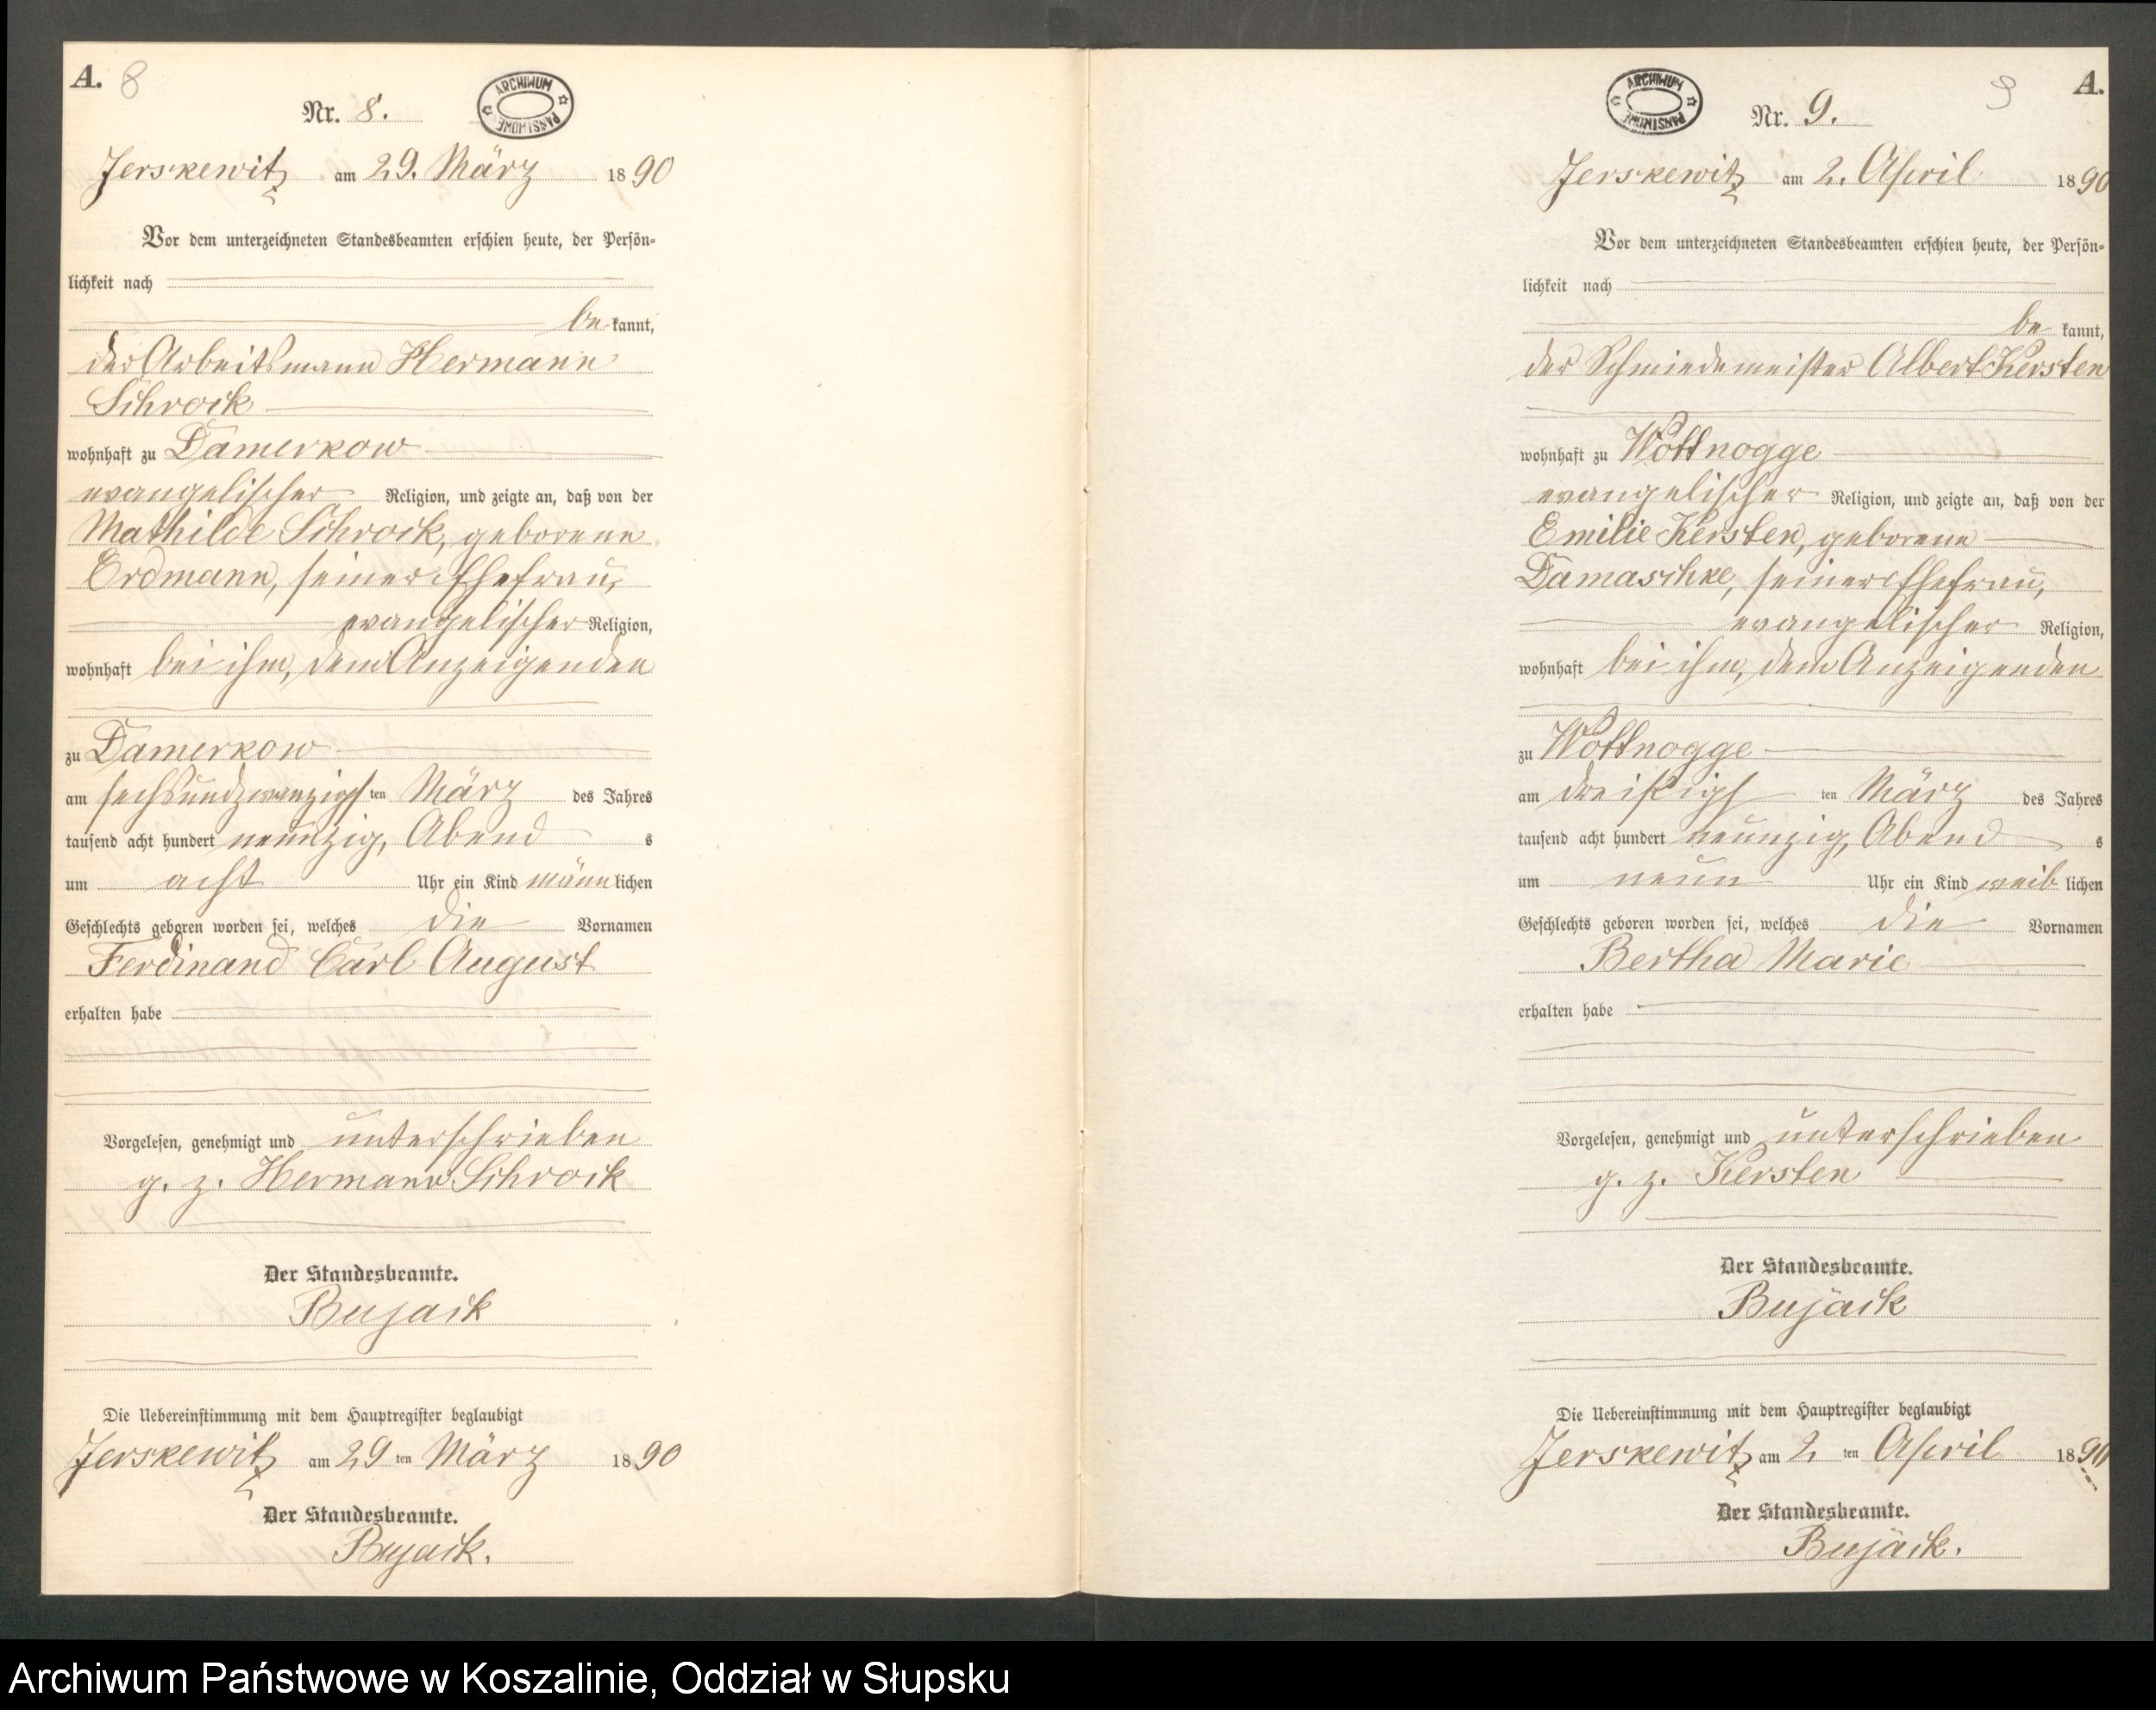 A. 8
Nr. 8.
ARCHIWUM PAŃSTWOWE
Jerskewitz am 29. März 1890
Vor dem unterzeichneten Standesbeamten erschien heute, der Persön-
lichkeit nach
be kannt,
der Arbeitsmann Hermann
Schrock
wohnhaft zu Damerkow
evangelischer Religion, und zeigte an, daß von der
Mathilde Schrock, geborene
Erdmann, seiner Ehefrau,
evangelischer Religion,
wohnhaft bei ihm, dem Anzeigenden
zu Damerkow
am sechsundzwanzigsten März des Jahres
tausend acht hundert neunzig, Abend s
um acht Uhr ein Kind männlichen
Geschlechts geboren worden sei, welches die Vornamen
Ferdinand Carl August
erhalten habe
Vorgelesen, genehmigt und unterschrieben
g. z. Hermann Schrock
Der Standesbeamte.
Bujack
Die Uebereinstimmung mit dem Hauptregister beglaubigt
Jerskewitz am 29 ten März 1890
Der Standesbeamte.
Bujack.
9 A.
ARCHIWUM PAŃSTWOWE
Nr. 9.
Jerskewitz am 2. April 1890
Vor dem unterzeichneten Standesbeamten erschien heute, der Persön-
lichkeit nach
be kannt,
der Schmiedemeister Albert Kersten
wohnhaft zu Wottnogge
evangelischer Religion, und zeigte an, daß von der
Emilie Kersten, geborene
Damaschke, seiner Ehefrau,
evangelischer Religion,
wohnhaft bei ihm, dem Anzeigenden
zu Wottnogge
am dreißigs ten März des Jahres
tausend acht hundert neunzig, Abend s
um neun Uhr ein Kind weib lichen
Geschlechts geboren worden sei, welches die Vornamen
Bertha Marie
erhalten habe
Vorgelesen, genehmigt und unterschrieben
g. z. Kersten
Der Standesbeamte.
Bujack
Die Uebereinstimmung mit dem Hauptregister beglaubigt
Jerskewitz am 2 ten April 1890
Der Standesbeamte.
Bujack.
Archiwum Państwowe w Koszalinie, Oddział w Słupsku